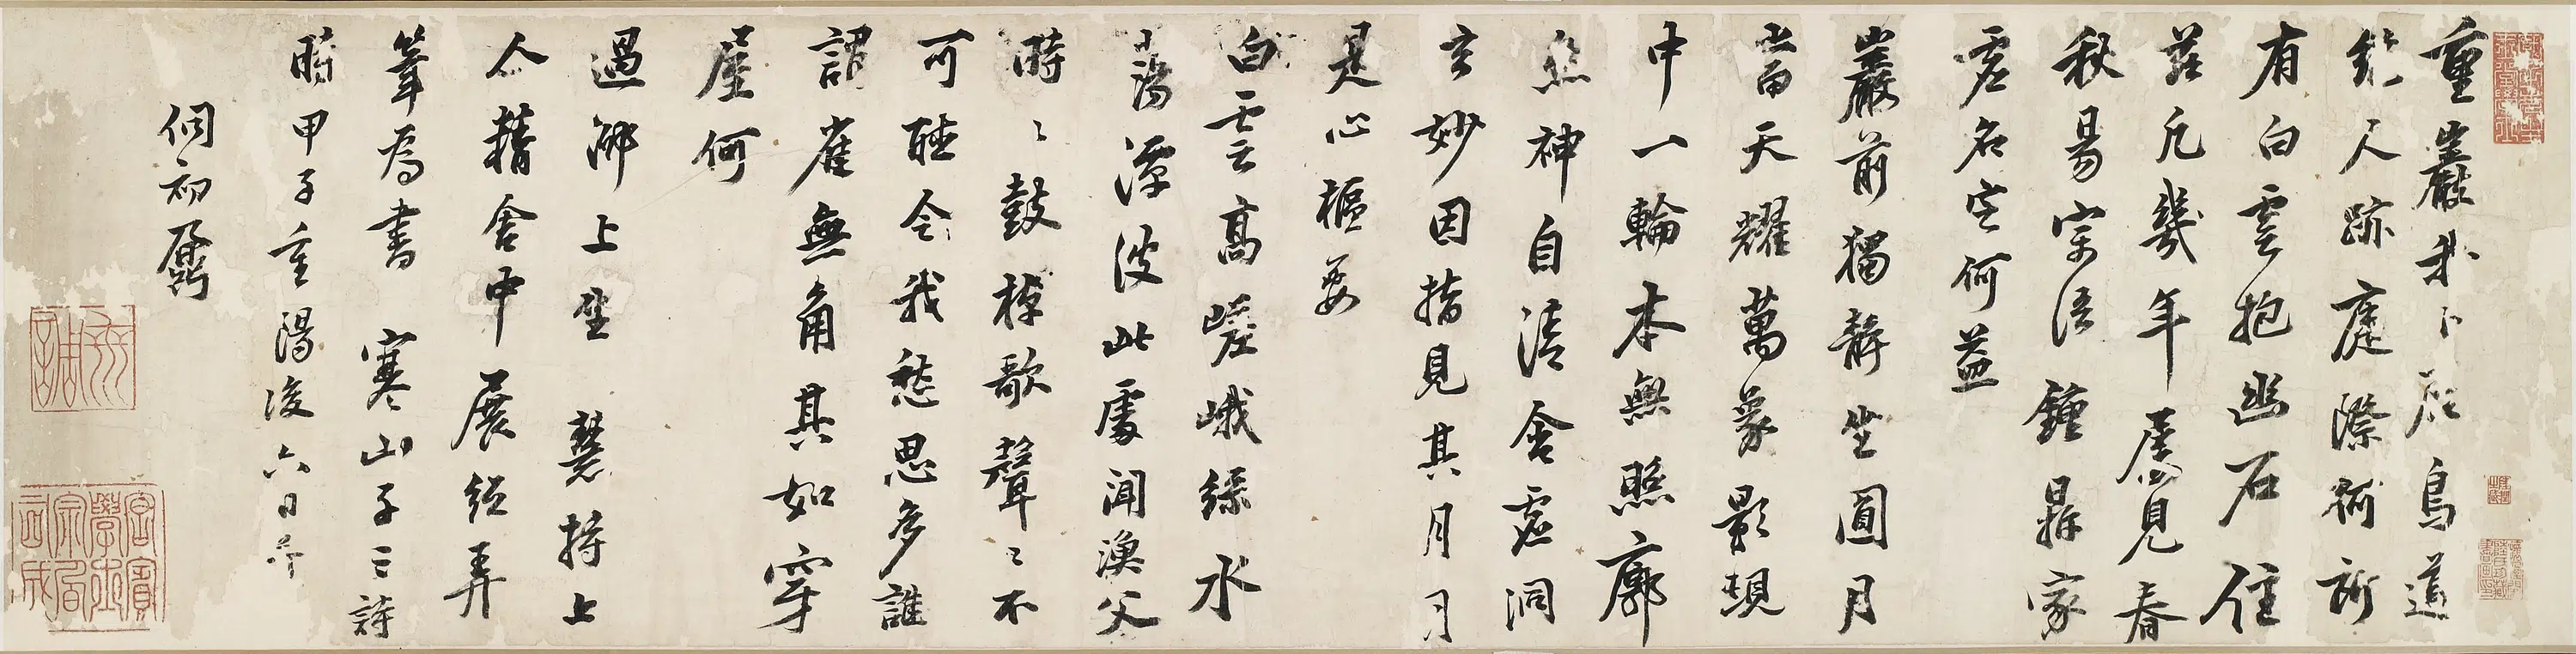 重巖我卜居鳥道
絕人跡庭際何所
有白雲抱幽石住
茲凡幾年屢見春
秋易寄語鐘鼎家
虛名空何益
巖前獨靜坐圓月
當天耀萬象影現
中一輪本無照廓
然神自清含虛洞
玄妙因指見其月月
是心樞要
白雲高嵯峨綠水
蕩潭波此處聞漁父
時〻鼓棹歌聲〻不
可聽令我愁思多誰
謂雀無角其如穿
屋何
過上坐 慧持上
人精舍中展紙弄
筆為書 寒山子三詩
時甲子重陽後六日
初